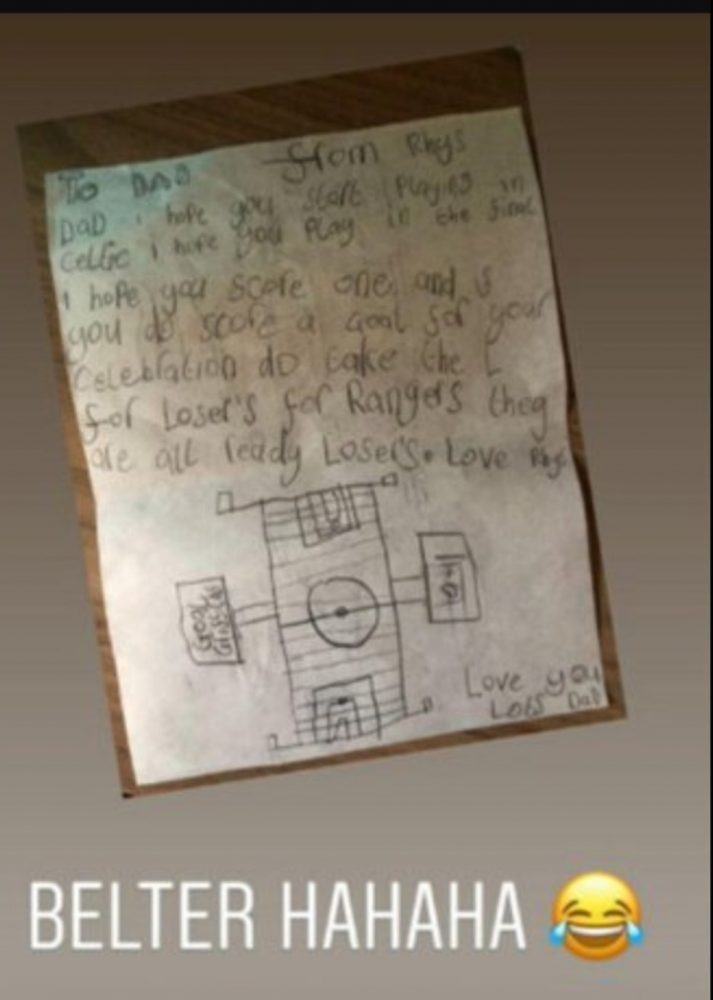 from Rhys
To DAD
DAD i hope you start Playing in
Celtic i hope you Play in the final
i hope you score one and if
you do score a Goal for your
Celebration do take the L
for Loser's for Rangers they
are all ready Loser's. Love Rhys
Goal
Love you
Lots DaD
BELTER HAHAHA 😂